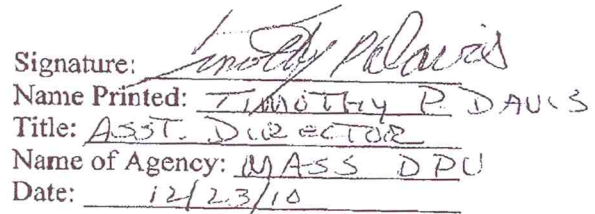 Signature: Timothy P Davis
Name Printed: TIMOTHY P. DAVIS
Title: ASST. DIRECTOR
Name of Agency: MASS DPU
Date: 12/23/10